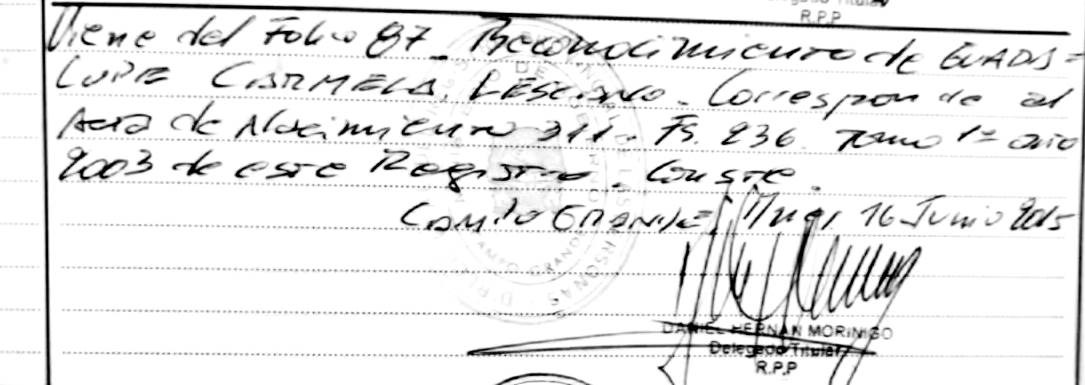 Delegado Titular
R.P.P
Viene del Folio 87_ Reconocimiento de GUADA=
LUPE CARMELA LESCANO. Corresponde al
Acta de Nacimiento 311. Fs. 236. Tomo 1º año
2003 de este Registro. Conste.
CAMPO GRANDE, Mnes, 16 Junio 2015
DANIEL HERNAN MORINIGO
Delegado Titular
R.P.P